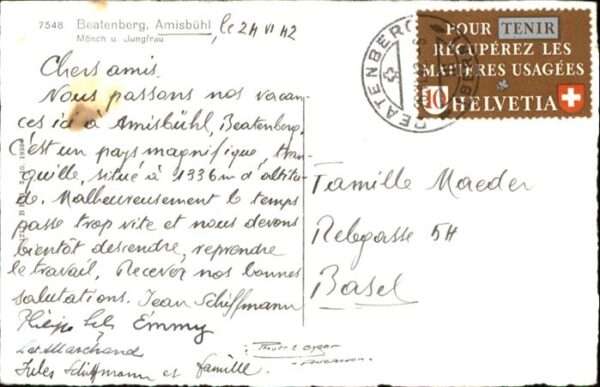 7548 Beatenberg, Amisbühl
Mönch u. Jungfrau
le 24 VI 42
Chers amis.
Nous passons nos vacan-
ces ici à Amisbühl, Beatenberg.
C'est un pays magnifique, tran-
quille, situé à 1336m d'altitu-
de. Malheureusement le temps
passe trop vite et nous devons
bientôt descendre, reprendre
le travail. Recevez nos bonnes
salutations. Jean Schiffmann
Emmy
Marchand
Jules Schiffmann et famille.
POUR TENIR
RÉCUPÉREZ LES
MATIÈRES USAGÉES
10 HELVETIA
BEATENBERG
BEATENBERG
Famille Maeder
Rebgasse 54
Basel